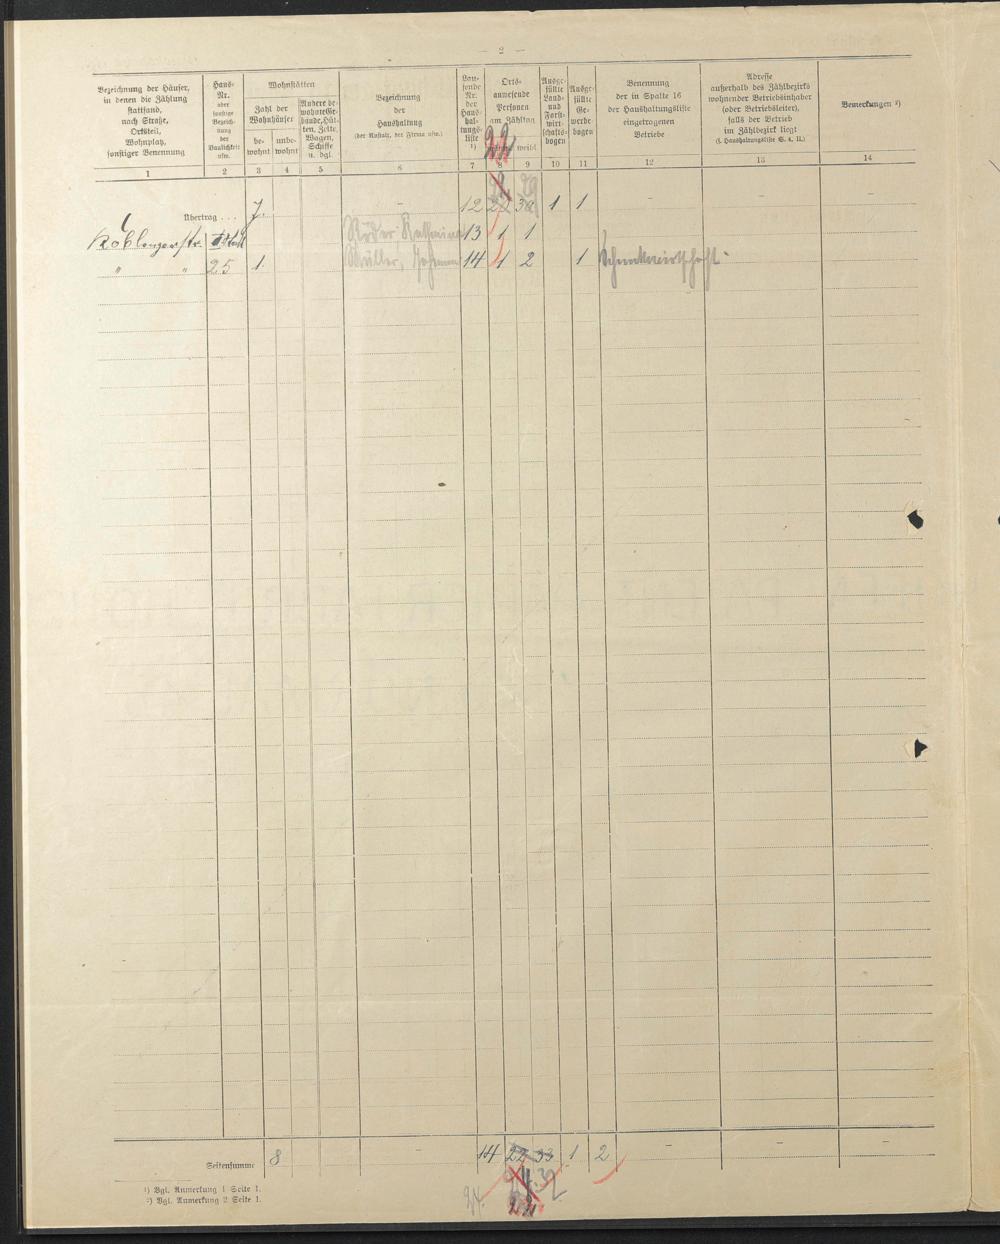 — 2 —
Bezeichnung der Häuser,
in denen die Zählung
stattfand,
nach Straße,
Ortsteil,
Wohnplatz,
sonstiger Benennung
Haus-
Nr.
oder
sonstige
Bezeich-
nung
der
Baulichkeit
usw.
Wohnstätten
Zahl der
Wohnhäuser
be-
wohnt
unbe-
wohnt
Andere be-
wohnte Ge-
bäude, Hüt-
ten, Zelte,
Wagen,
Schiffe
u. dgl.
Bezeichnung
der
Haushaltung
(der Anstalt, der Firma usw.)
Lau-
fende
Nr.
der
Haus-
hal-
tungs-
liste
¹)
Orts-
anwesende
Personen
am Zähltag
weibl
Ausge-
füllte
Land-
und
Forst-
wirt-
schafts-
bogen
Ausge-
füllte
Ge-
werbe-
bogen
Benennung
der in Spalte 16
der Haushaltungsliste
eingetragenen
Betriebe
Adresse
außerhalb des Zählbezirks
wohnender Betriebsinhaber
(oder Betriebsleiter),
falls der Betrieb
im Zählbezirk liegt
(s. Haushaltungsliste S. 4, II.)
Bemerkungen ²)
1 2 3 4 5 6 7 8 9 10 11 12 13 14
29
Übertrag . . . 7. — 12 1 1 — — —
Koblenzerstr. 13 1 1
" " 25 1. Müller, Johann 14 1 2 1 Schankwirtschaft
Seitensumme 8 — 14 22 33 1 2 — — —
24. 32
¹) Vgl. Anmerkung 1 Seite 1.
²) Vgl. Anmerkung 2 Seite 1.